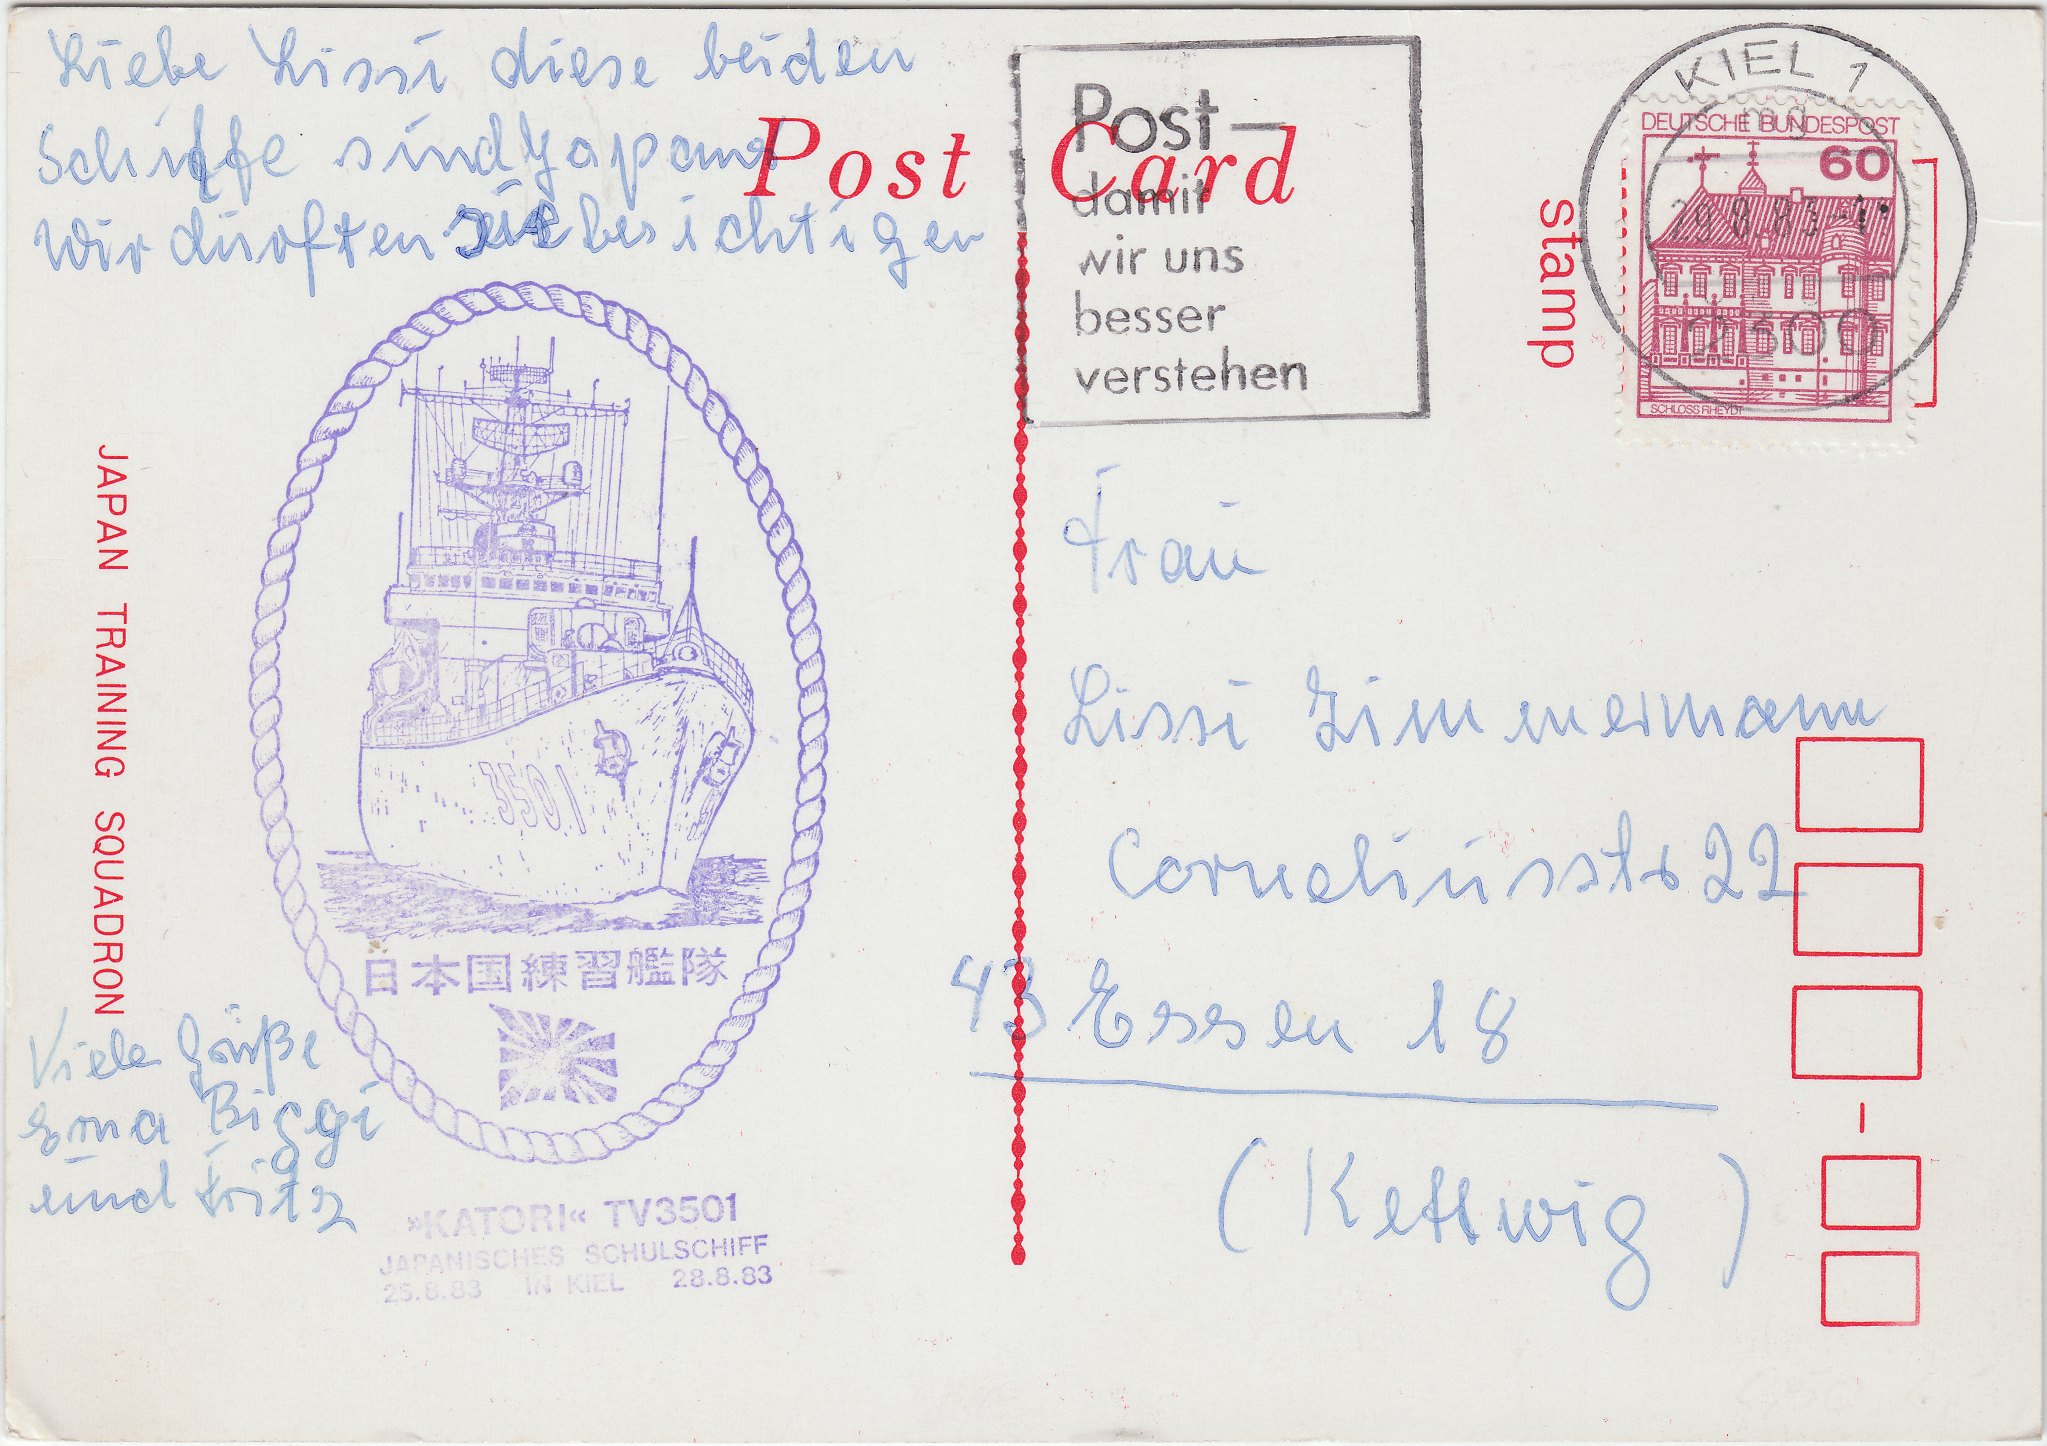 Liebe Lissi diese beiden
Schiffe sind Japans
Wir durften sie besichtigen
Post Card
Post-
damit
wir uns
besser
verstehen
KIEL 1
mg
29.8.83-1
2300
DEUTSCHE BUNDESPOST
60
SCHLOSS RHEYDT
stamp
JAPAN TRAINING SQUADRON
3501
日本国練習艦隊
Viele Grüße
Erna Biggi
und Fritz
»KATORI« TV3501
JAPANISCHES SCHULSCHIFF
25.8.83 IN KIEL 28.8.83
Frau
Lissi Zimmermann
Corneliusstr 22
43 Essen 18
(Kettwig)